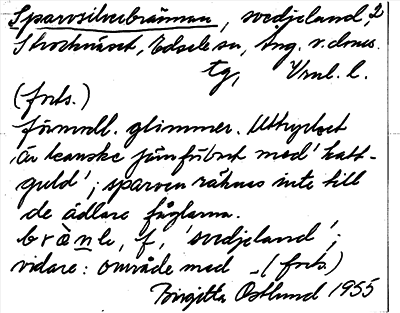 Sparvsilverbrännan, svedjeland, 2
Stocknäset, Edsele sn, Ång. v. doms.
tg, Vrnl. l.
(forts.)
förmodl. glimmer. Uttrycket
är kanske jämförbart med 'katt-
guld'; sparven räknas inte till
de ädlare fåglarna.
brànle, f, 'svedjeland';
vidare: område med – (forts.)
Birgitta Östlund 1955